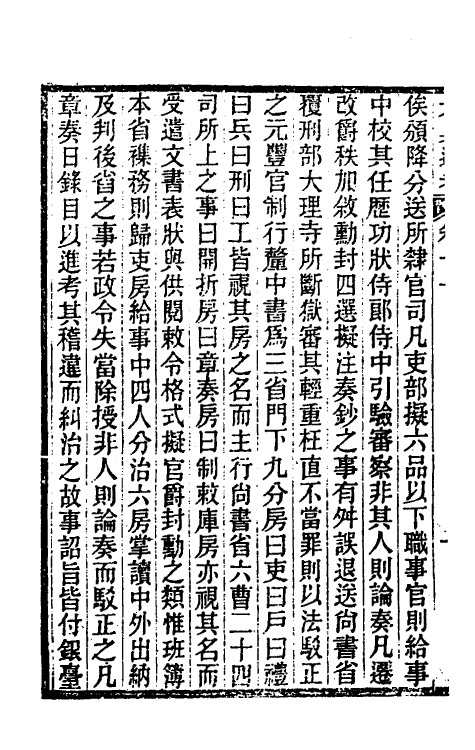 俟頒降分送所隸官司凡吏部擬六品以下職事官則給事
中校其任歷功狀侍郞侍中引驗審察非其人則論奏凡遷
改爵秩加敘勳封四選擬注奏鈔之事有舛誤退送尙書省
覆刑部大理寺所斷獄審其輕重枉直不當罪則以法駁正
之元豐官制行釐中書爲三省門下九分房曰吏曰戸曰禮
曰兵曰刑曰工皆視其房之名而主行尙書省六曹二十四
司所上之事曰開拆房曰章奏房曰制敕庫房亦視其名而
受遣文書表狀與供閱敕令格式擬官爵封勳之類惟班簿
本省襍務則歸吏房給事中四人分治六房掌讀中外出納
及判後省之事若政令失當除授非人則論奏而駁正之凡
章奏日錄目以進考其稽違而糾治之故事詔旨皆付銀臺